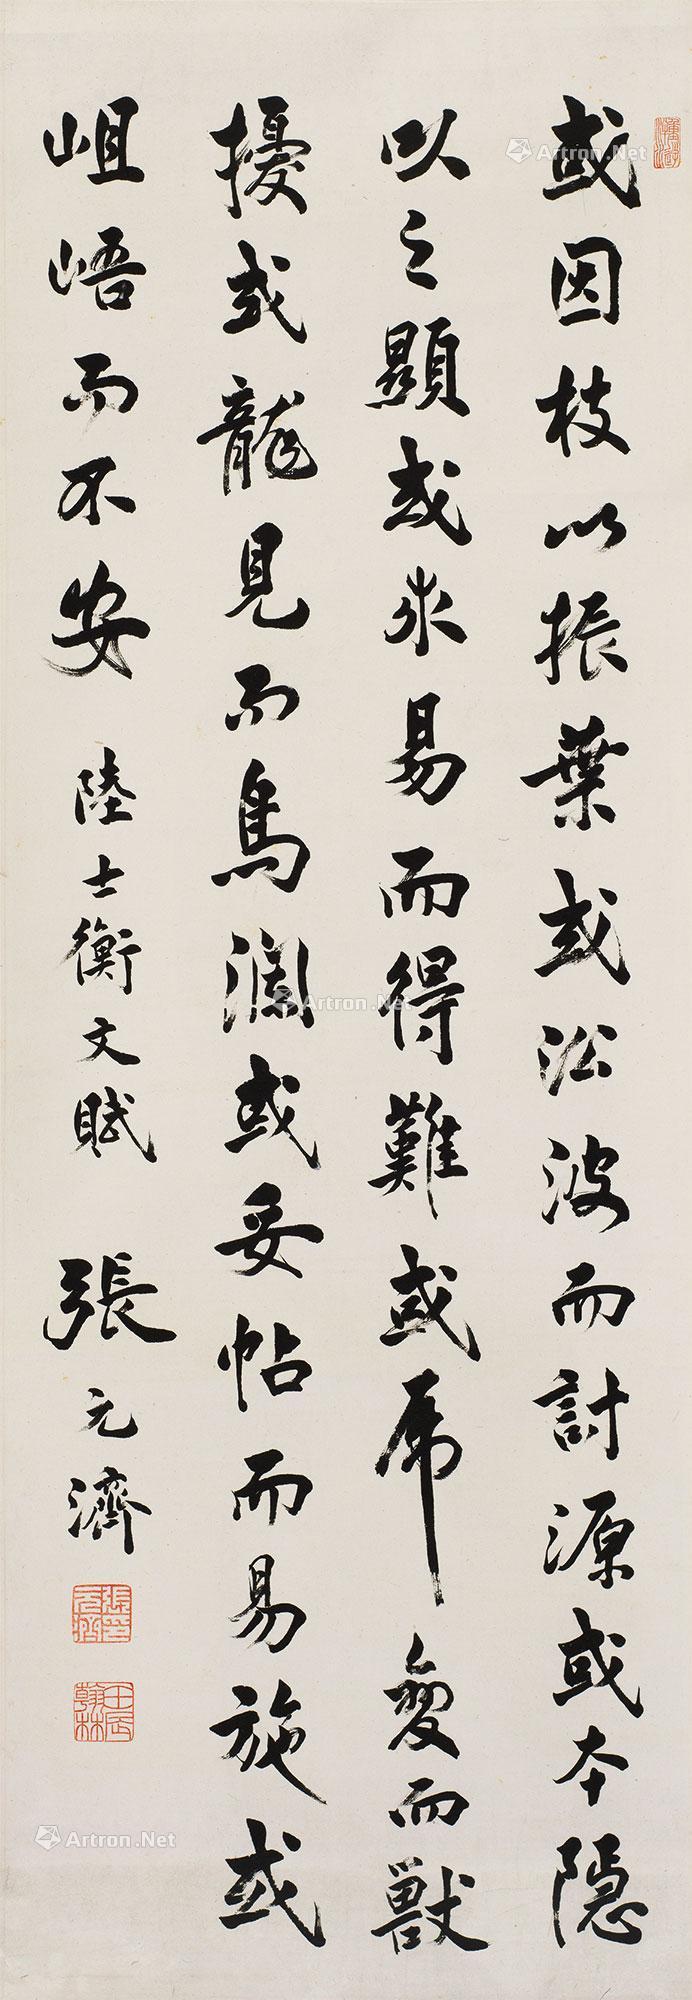 或因枝以振葉或沿波而討源或本隱
以之顯或求易而得難或虎變而獸
擾或龍見而鳥瀾或妥帖而易施或
岨峿而不安　陸士衡文賦　張元濟
張元濟印
壬辰翰林
Artron.Net
Artron.Net
Artron.Net